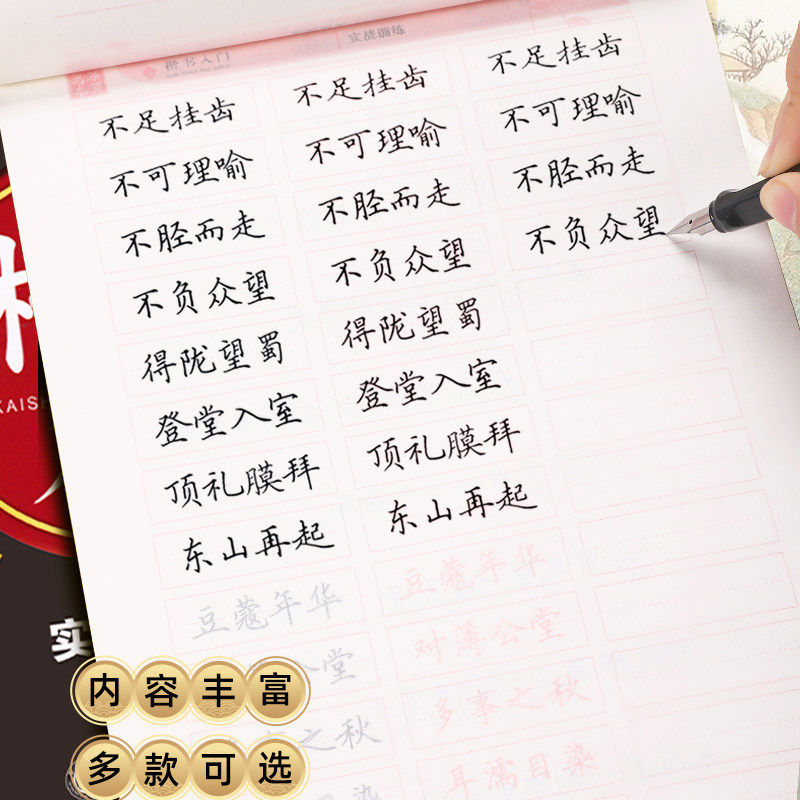 实战训练
楷书入门
不足挂齿 不足挂齿 不足挂齿
不可理喻 不可理喻 不可理喻
不胫而走 不胫而走 不胫而走
不负众望 不负众望 不负众望
得陇望蜀 得陇望蜀
登堂入室 登堂入室
顶礼膜拜 顶礼膜拜
东山再起 东山再起
豆蔻年华 豆蔻年华
公堂 对簿公堂
之秋 多事之秋
染 耳濡目染
KAISH
实
内容丰富
多款可选